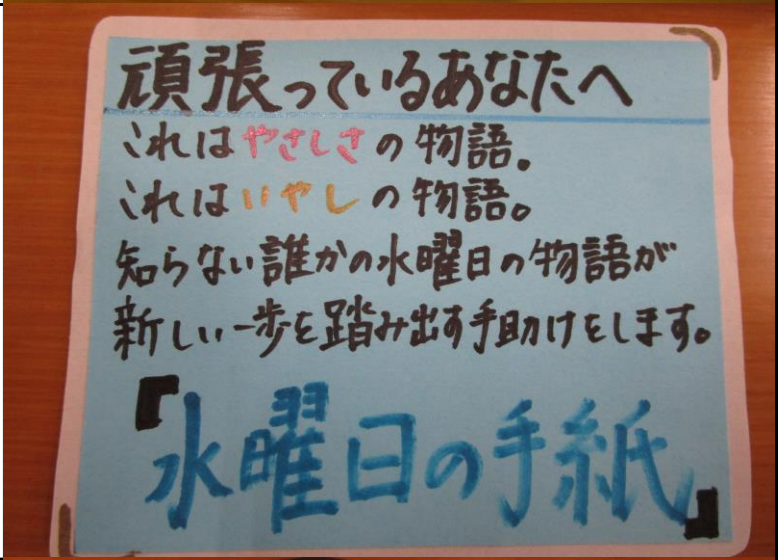 頑張っているあなたへ
これはやさしさの物語。
これはいやしの物語。
知らない誰かの水曜日の物語が
新しい一歩を踏み出す手助けをします。
『水曜日の手紙』